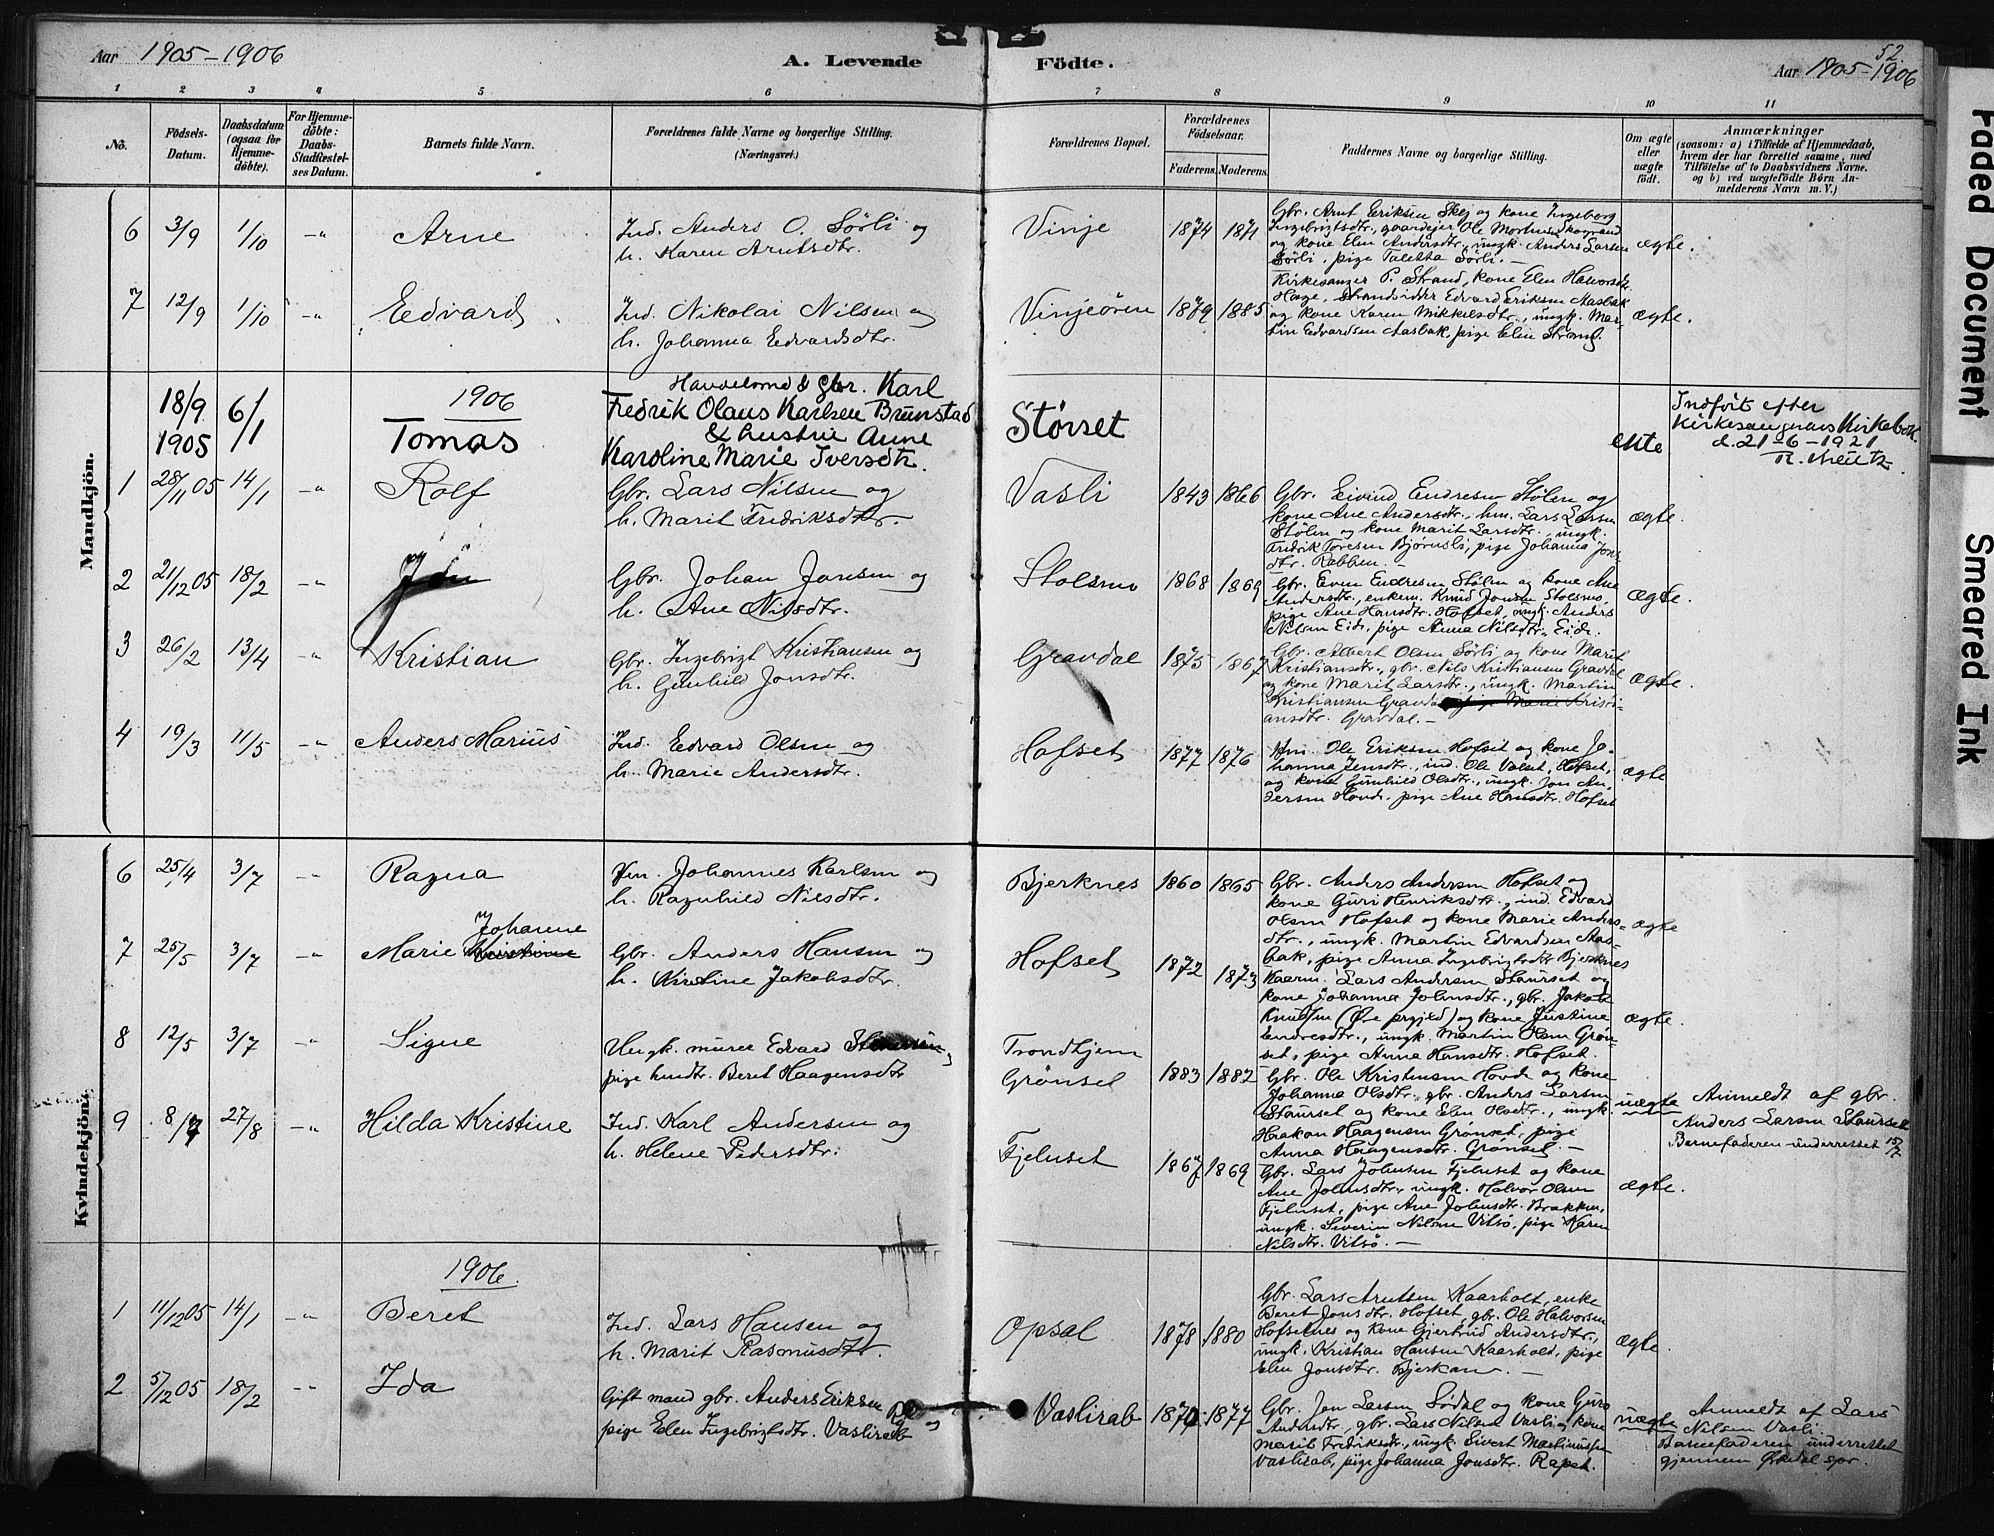 Aar 1905-1906
A. Levende Födte.
52.
Aar 1905-1906
1 2 3 4 5 6 7 8 9 10 11
No.
Födsels-Datum.
Daabsdatum (ogsaa for Hjemmedöbte).
For Hjemmedöbte: Daabs-Stadfæstelses Datum.
Barnets fulde Navn.
Forældrenes fulde Navne og borgerlige Stilling.
(Næringsvei.)
Forældrenes Bopæl.
Forældrenes Födselsaar.
Faderens. Moderens.
Faddernes Navne og borgerlige Stilling.
Om ægte eller uægte födt.
Anmærkninger
(saasom: a) i Tilfælde af Hjemmedaab, hvem der har forrettet samme, med Tilföielse af to Daabsvidners Navne. og b) ved uægtefödte Börn Anmelderens Navn m. V.)
Mandkjön.
6 3/9 1/10 -"- Arne
Ind. Anders O. Sørli og
h. Karen Arntsdtr.
Vinje 1874 1871
Gbr. Arnt Eriksen Skej og kone Ingeborg
Ingebrigtsdtr., gaardejer Ole
og kone Elen Andersdtr., ungk. Anders Larsen
Sørli, pige Taletta Sørli. -
ægte.
7 12/9 1/10 -"- Edvard
Ind. Nikolai Nilsen og
h. Johanna Edvardsdtr.
Vinjeören 1879 1885
Kirkesanger P. Strand, kone Elen Halvorsdtr.
Hage, Strandsidder Edvard Eriksen Aasbak
og kone Karen Mikkelsdtr., ungk. Mar-
tin Edvardsen Aasbak, pige Elin Strand.
ægte.
18/9 1905 6/1
1906
Tomas
Handelsmd & gbr. Karl
Fredrik Olaus Karlsen Brunstad
& hustru Anne
Karoline Marie Iversdtr.
Störset
ekte
Indfört efter
Kirkesangerens Kirkebok
d. 21-6-1921
1 28/11 05 14/1 -"- Rolf
Gbr. Lars Nilsen og
h. Marit Fredriksdtr.
Vasli 1843 1866
Gbr. Eivind Endresen Stølen og
kone Ane Andersdtr., hm. Lars Larsen
Stølen og kone Marit Larsdtr., ungk.
Fredrik Toresen Bjørnsli, pige Johanna Jons-
dtr. Rabben.
ægte.
2 21/12 05 18/2 -"-
Gbr. Johan Jonsen og
h. Ane Nilsdtr.
Stolsmo 1868 1869
Gbr. Even Endresen Stølen og kone Ane
Andersdtr., enkem. Knud Jonsen Stolsmo,
pige Ane Hansdtr. Hofset, ungk. Anders
Nilsen Eide, pige Anna Nilsdtr. Eide.
ægte.
3 26/2 13/4 -"- Kristian
Gbr. Ingebrigt Kristiansen og
h. Gunhild Jonsdtr.
Gravdal 1875 1867
Gbr. Albert Olsen Sørli og kone Marit
Kristiansdtr., gbr. Nils Kristiansen Gravdal
og kone Marit Larsdtr., ungk. Martin
Kristiansen Gravdal, pige Marie Kristi-
ansdtr. Gravdal. -
ægte.
4 19/3 11/5 -"- Anders Marius
Ind. Edvard Olsen og
h. Marie Andersdtr.
Hofset 1877 1876
Hm. Ole Eriksen Hofset og kone Jo-
hanna Jensdtr., ind. Ole Valset, Hofset,
og kone Gunhild Olsdtr., ungk. Jon An-
dersen Hovde, pige Ane Hansdtr. Hofset
ægte
Kvindekjön.
6 25/4 3/7 -"- Ragna
Hm. Johannes Karlsen og
h. Ragnhild Nilsdtr.
Bjerknes 1860 1865
Gbr. Anders Andersen Hofset og
kone Guri Henriksdtr., ind. Edvard
Olsen Hofset og kone Marie Anders-
dtr., ungk. Martin Edvardsen Aas-
bak, pige Anna Ingebrigtsdtr. Bjerknes
ægte
7 25/5 3/7 -"- Marie Kristinne Johanne
Gbr. Anders Hansen og
h. Kirstine Jakobsdtr.
Hofset 1872 1873
Kaarm. Lars Andersen Staurset og
kone Johanna Johnsdtr., gbr. Jakob
Knudsen (Øie prgjeld) og kone Justine
Endresdtr., ungk. Martin Olsen Grøn-
set, pige Anna Hansdtr. Hofset.
ægte.
8 12/5 3/7 -"- Signe
Ungk. murer Edvard
pige hmdtr. Beret Haagensdtr
Trondhjem
Grönset 1883 1882
Gbr. Ole Kristensen Hovde og kone
Johanna Olsdtr., gbr. Anders Larsen
Staurset og kone Elen Olsdtr., ungk.
Haakon Haagensen Grønset, pige
Anna Haagensdtr. Grönset. -
uægte
Anmeldt af gbr.
Anders Larsen Staurset
Barnefaderen underrettet 15/7
9 8/7 27/8 -"- Hilda Kristine
Ind. Karl Andersen og
h. Helene Pedersdtr.
Fjelnset 1867 1869
Gbr. Lars Johnsen Fjelnset og kone
Ane Johnsdtr., ungk. Halvor Olsen
Fjelnset, pige Ane Johnsdtr. Brakken,
ungk. Severin Nilsen Vitsö, pige Karen
Nilsdtr. Vitsö. -
ægte.
1906
1 11/12 05 14/1 -"- Beret
Ind. Lars Hansen og
h. Marit Rasmusdtr.
Opsal 1878 1880
Gbr. Lars Arntsen Kaarholt, enke
Beret Jonsdtr. Hofset, gbr. Ole Halvorsen
Hofsetnes og kone Gjertrud Andersdtr.,
ungk. Kristian Hansen Kaarhold, pige
Elen Jonsdtr. Bjerkan. -
ægte.
2 5/12 05 18/2 -"- Ida
Gift mand gbr. Anders Eriksen og
pige Elen Ingebrigtsdtr. Vaslirab
Vaslirab 1870 1877
Gbr. Jon Larsen Sødal og kone Guru
Andersdtr., gbr. Lars Nilsen Vasli og kone
Marit Fredriksdtr., ungk. Sivert Martinussen
Vaslirab, pige Johanna Jonsdtr. Rapet.
uægte
Anmeldt af Lars
Nilsen Vasli.
Barnefaderen underrettet
gjennem Ørkedal spr.
Faded Document
Smeared Ink